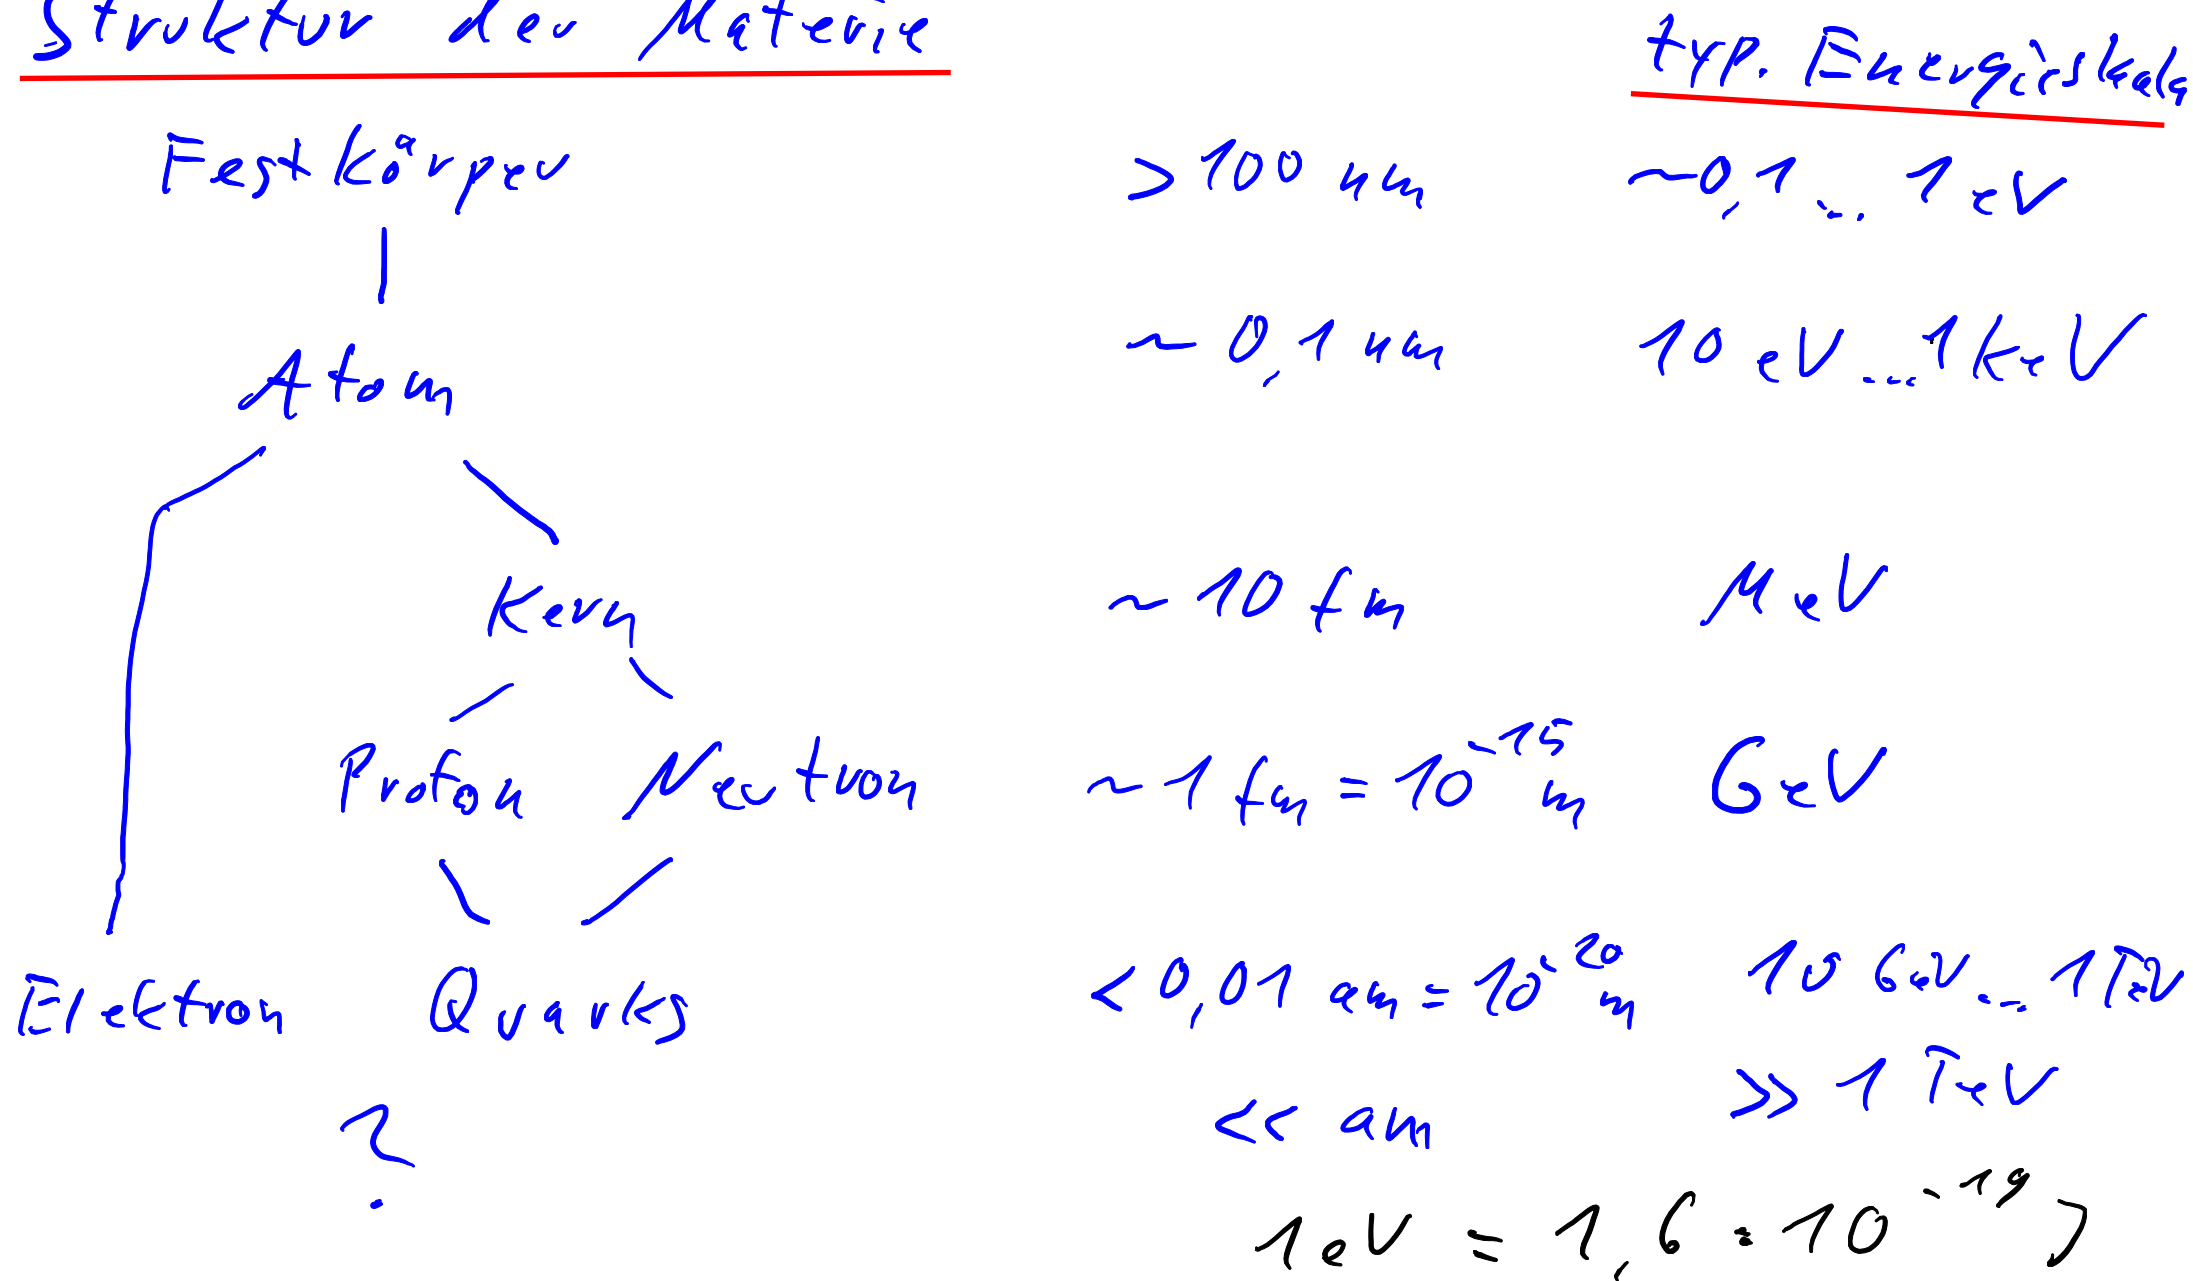 Struktur der Materie typ. Energieskala
Festkörper > 100 nm ~0,1... 1 eV
Atom ~ 0,1 nm 10 eV...1keV
Kern ~ 10 fm MeV
Proton Neutron ~ 1 fm = 10⁻¹⁵ m GeV
Elektron Quarks < 0,01 am = 10⁻²⁰ m 10 GeV... 1TeV
? << am >> 1 TeV
1eV = 1,6 · 10⁻¹⁹ J